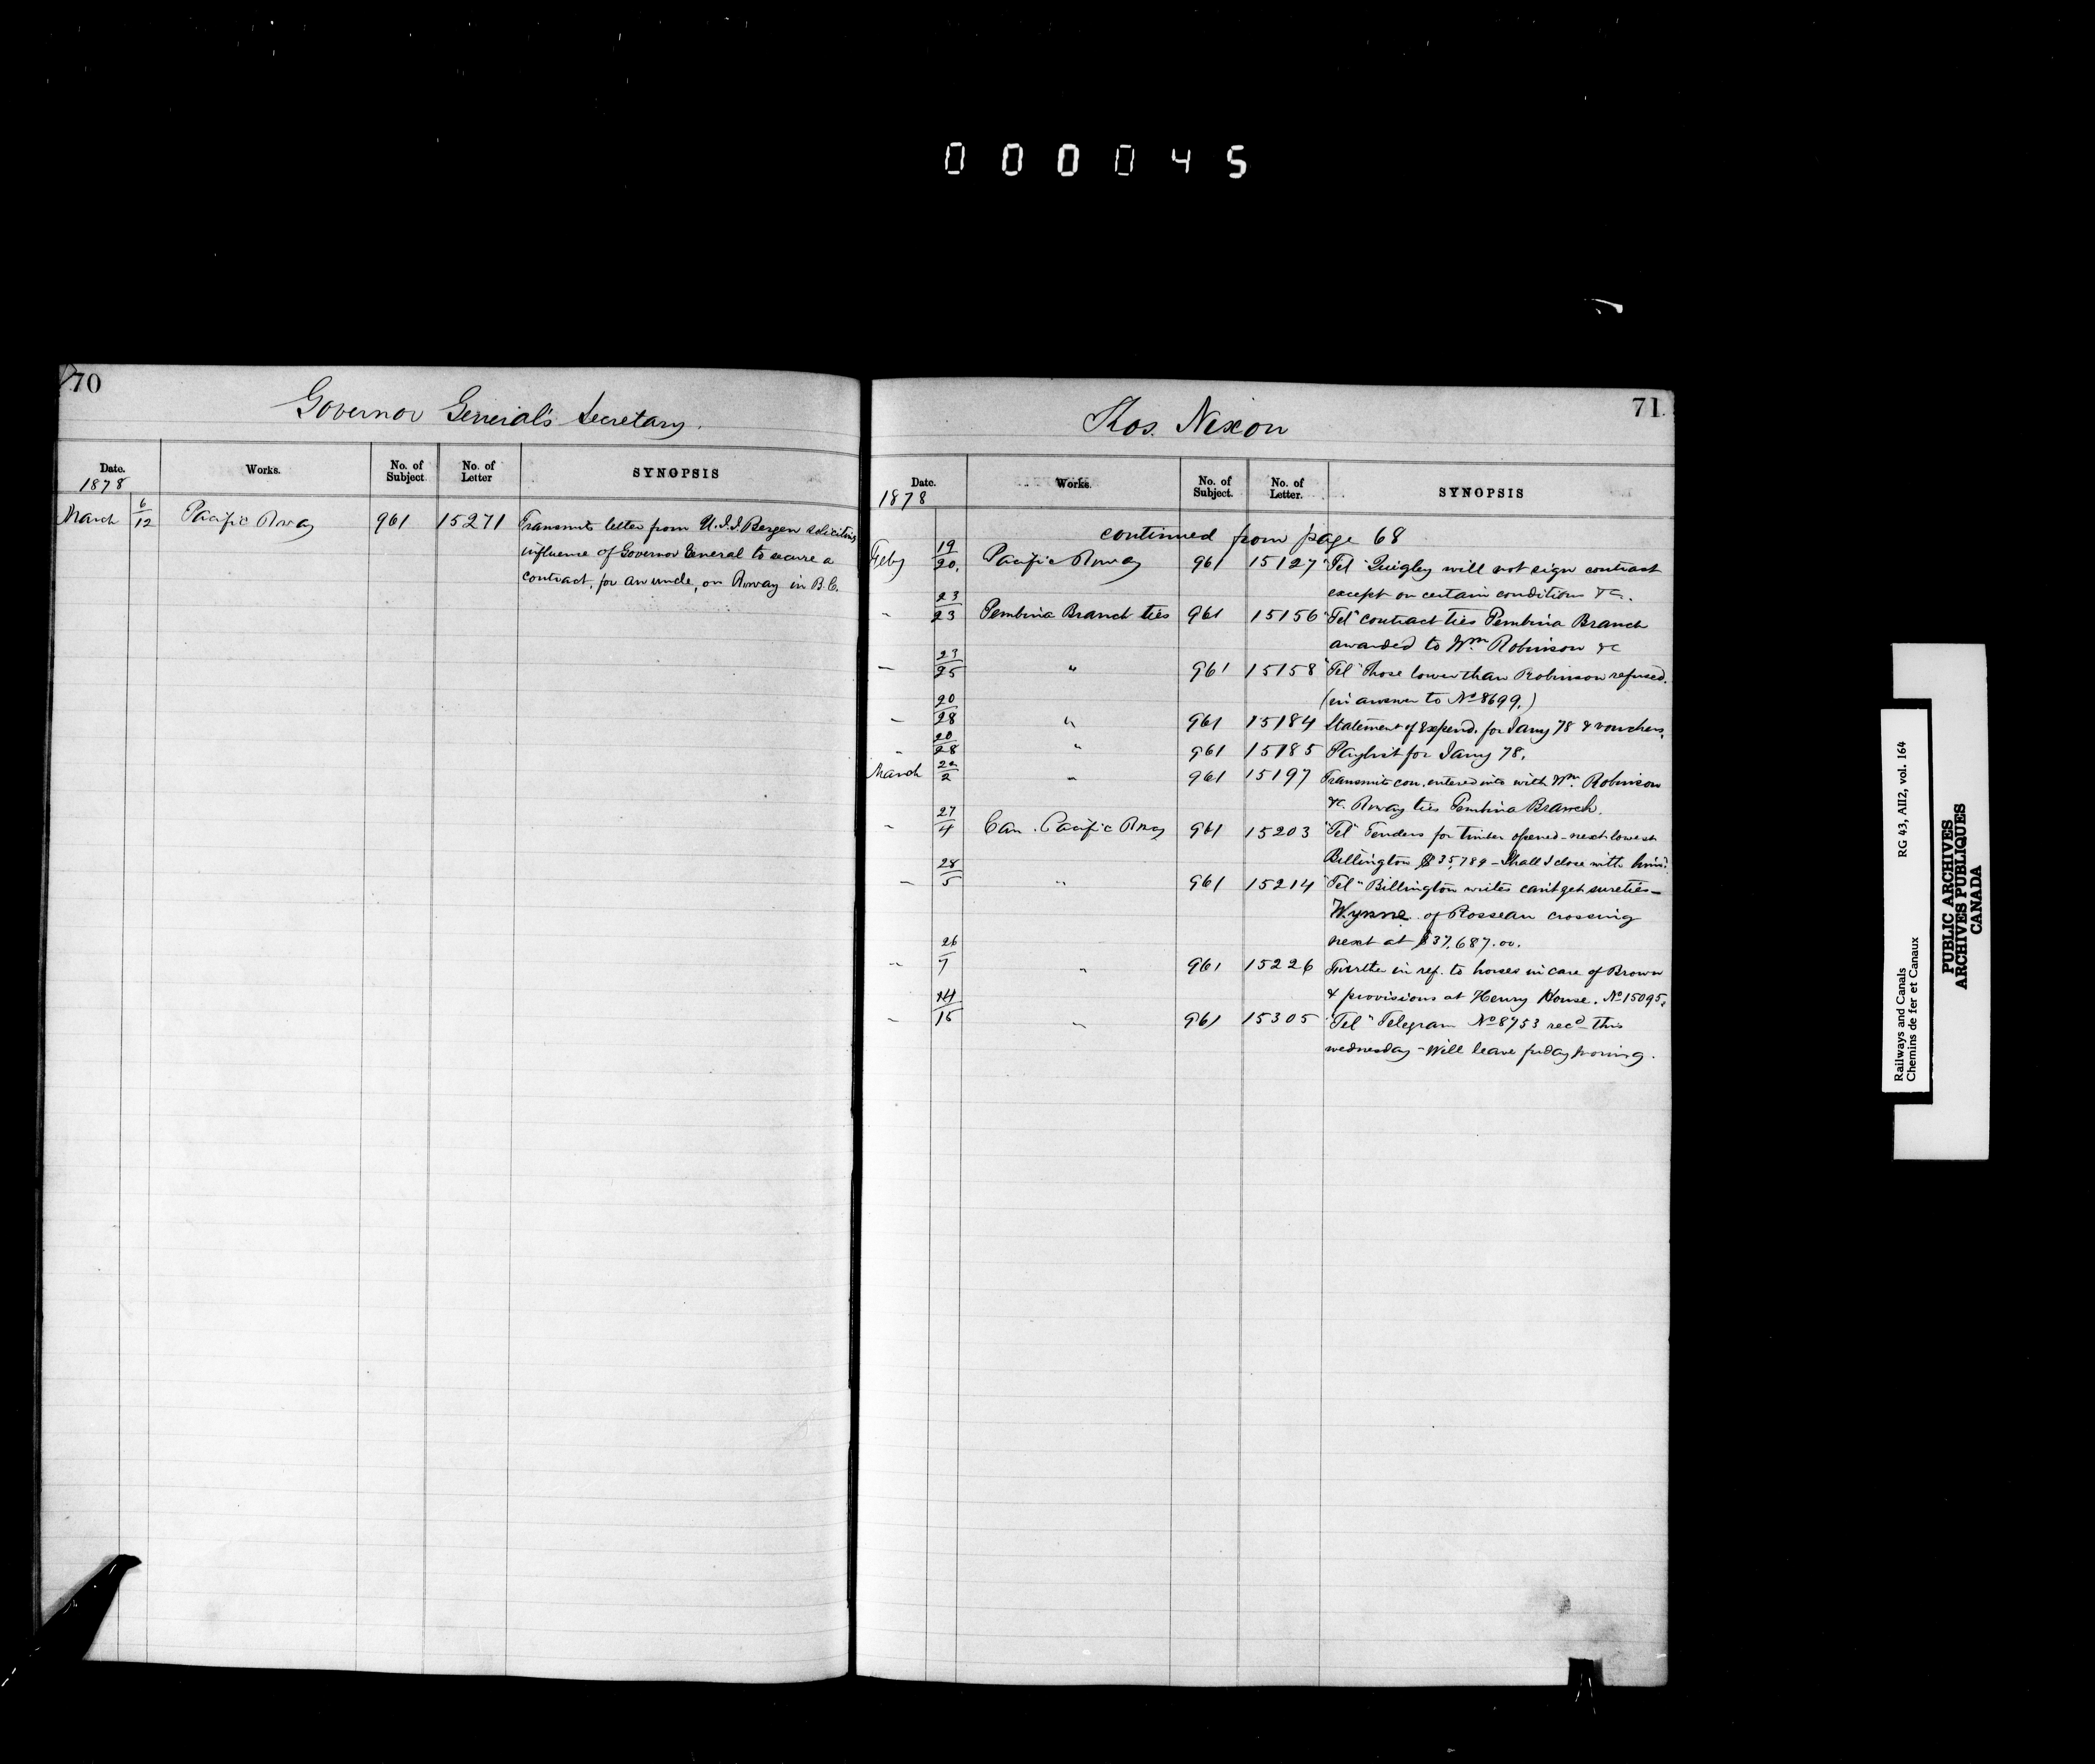 000045
70
Governor General's Secretary.
Date. Works. No. of Subject No. of Letter SYNOPSIS
1878
March 6/12 Pacific Rway 961 15271 Transmits letter from U.I.I. Bergen soliciting
influence of Governor General to secure a
contract, for an uncle, on Rway in B.C.
71
Thos. Nixon
Date. Works. No. of Subject. No. of Letter. SYNOPSIS
1878
continued from page 68
Feby 19/20. Pacific Rway 961 15127 "Tel" Quigley will not sign contract
except on certain conditions &c.
" 23/23 Pembina Branch ties 961 15156 "Tel" contract ties Pembina Branch
awarded to Wm Robinson &c
" 23/25 " 961 15158 "Tel" Those lower than Robinson refused.
(in answer to No 8699.)
" 20/28 " 961 15184 Statement of expend. for Jany 78 & vouchers.
" 20/28 " 961 15185 Paylist for Jany 78.
March 22/2 " 961 15197 Transmits con. entered into with Wm. Robinson
&c. Rway ties Pembina Branch.
" 27/4 Can. Pacific Rway 961 15203 "Tel" Tenders for timber opened - next lowest
Billington $35,789 - Shall I close with him?
" 28/5 " 961 15214 "Tel" Billington writes can't get sureties -
Wynne of Rosseau crossing
next at $37,687.00.
" 26/7 " 961 15226 Further in ref. to horses in care of Brown
& provisions at Henry House. No 15095.
" 14/15 " 961 15305 "Tel" Telegram No 8753 recd this
wednesday - Will leave friday morning.
Railways and Canals RG 43, AII2, vol. 164
Chemins de fer et Canaux
PUBLIC ARCHIVES
ARCHIVES PUBLIQUES
CANADA